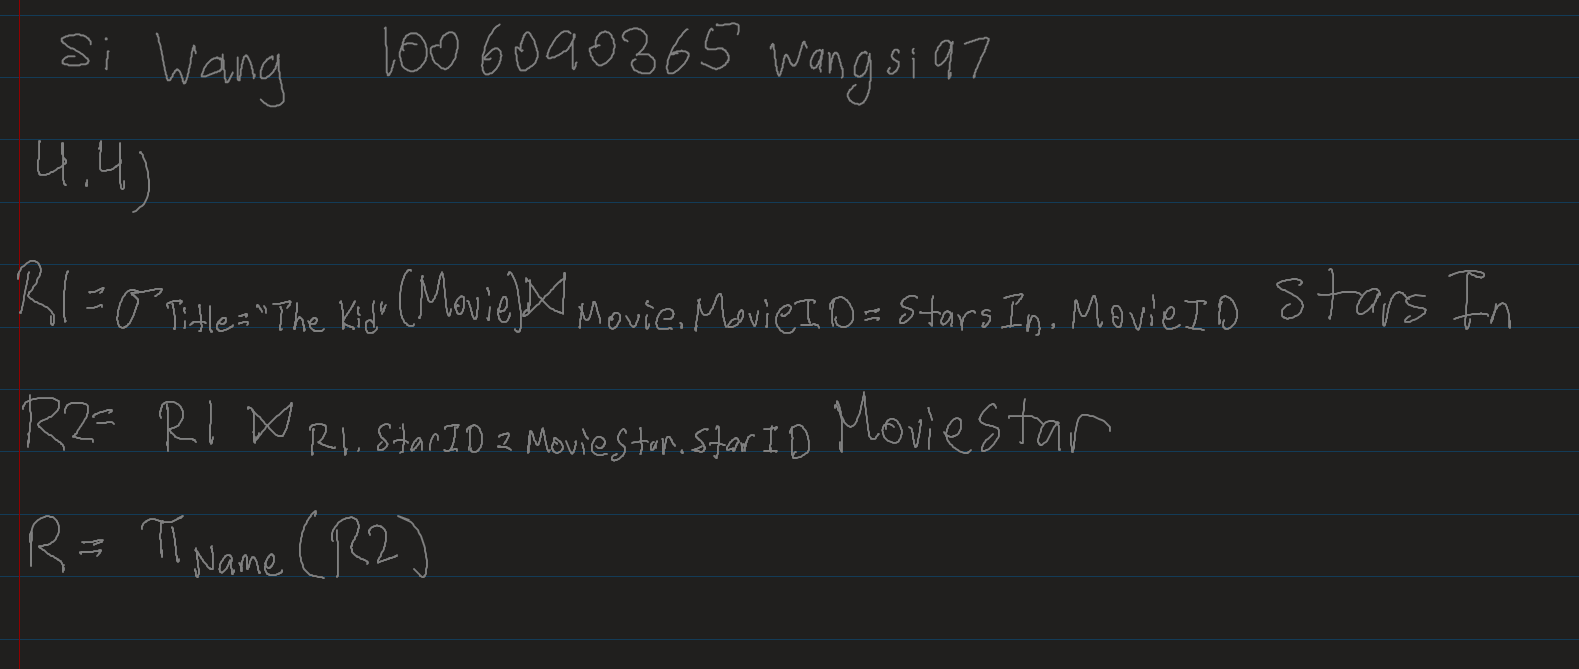 Si Wang 1006090365 wangsi97
4.4)
R1=σ Title="The Kid" (Movie)⋈ Movie.MovieID=StarsIn.MovieID StarsIn
R2= R1 ⋈ R1.StarID=MovieStar.StarID MovieStar
R= π Name (R2)